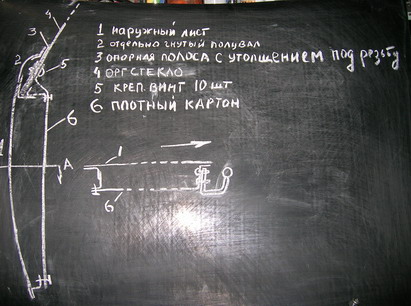 1 наружный лист
2 отдельно гнутый полувал
3 опорная полоса с утолщением под резьбу
4 оргстекло
5 креп. винт 10 шт
6 плотный картон
4
3
2
5
6
А
1
6